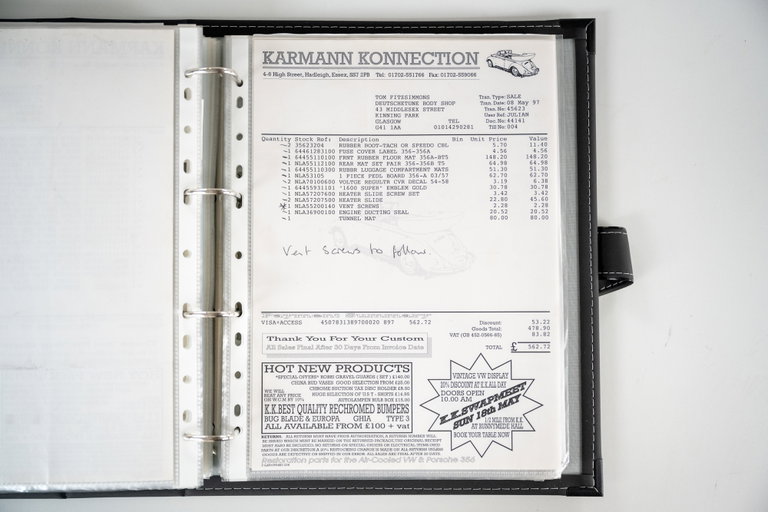 KARMANN KONNECTION
4-6 High Street, Hadleigh, Essex, SS7 2PB Tel: 01702-551766 Fax: 01702-559066
TOM FITZSIMMONS
DEUTSCHETUNE BODY SHOP
43 MIDDLESEX STREET
KINNING PARK
GLASGOW TEL
G41 1AA 01014290281
Tran. Type: SALE
Tran. Date: 08 May 97
Tran. No: 45623
User Ref: JULIAN
Doc. No: 44141
Till No: 004
Quantity Stock Ref: Description Bin Unit Price Value
2 35623204 RUBBER BOOT-TACH OR SPEEDO CBL 5.70 11.40
1 64461283100 FUSE COVER LABEL 356-356A 4.56 4.56
1 64455110100 FRNT RUBBER FLOOR MAT 356A-BT5 148.20 148.20
1 NLA55112100 REAR MAT SET PAIR 356-356B T5 64.98 64.98
1 64455110300 RUBBR LUGGAGE COMPARTMENT MATS 51.30 51.30
1 NLA53105 1 PIECE PEDL BOARD 356-A 03/57 62.70 62.70
2 NLA70100600 VOLTGE REGULTR CVR DECAL 54-58 3.19 6.38
1 64455931101 '1600 SUPER' EMBLEM GOLD 30.78 30.78
1 NLA57207600 HEATER SLIDE SCREW SET 3.42 3.42
2 NLA57207500 HEATER SLIDE 22.80 45.60
1 NLA55200140 VENT SCREWS 2.28 2.28
1 NLA36900100 ENGINE DUCTING SEAL 20.52 20.52
1 TUNNEL MAT 80.00 80.00
Vent Screws to follow.
Payment Summary
VISA+ACCESS 4507831389700020 897 562.72
Discount: 53.22
Goods Total: 478.90
VAT (GB 452-0566-85) 83.82
TOTAL £ 562.72
Thank You For Your Custom
All Sales Final After 30 Days From Invoice Date
HOT NEW PRODUCTS
*SPECIAL OFFER* BOMB GRAVEL GUARDS (SET) £140.00
CHINA BUD VASES GOOD SELECTION FROM £25.00
CHROME SUCTION TAX DISC HOLDER £8.50
HUGE SELECTION OF U.S T-SHIRTS £14.95
WE WILL
BEAT ANY PRICE
ON W.C.M BY 10%
K.K.BEST QUALITY RECHROMED BUMPERS
BUG BLADE & EUROPA GHIA TYPE 3
ALL AVAILABLE FROM £100 + vat
VINTAGE VW DISPLAY
20% DISCOUNT AT E.K.ALL DAY
DOORS OPEN
10.00 AM
K.K.SWAPMEET
SUN 18th MAY
1/2 MILE FROM K.K
AT RUNNYMEDE HALL
BOOK YOUR TABLE NOW
Restoration parts for the Air-Cooled VW & Porsche 356